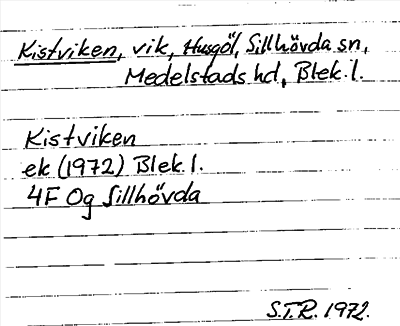 Kistviken, vik, Husgöl, Sillhövda sn,
Medelstads hd, Blek. l.
Kistviken
ek (1972) Blek. l.
4F Og Sillhövda
S.T.R. 1972.